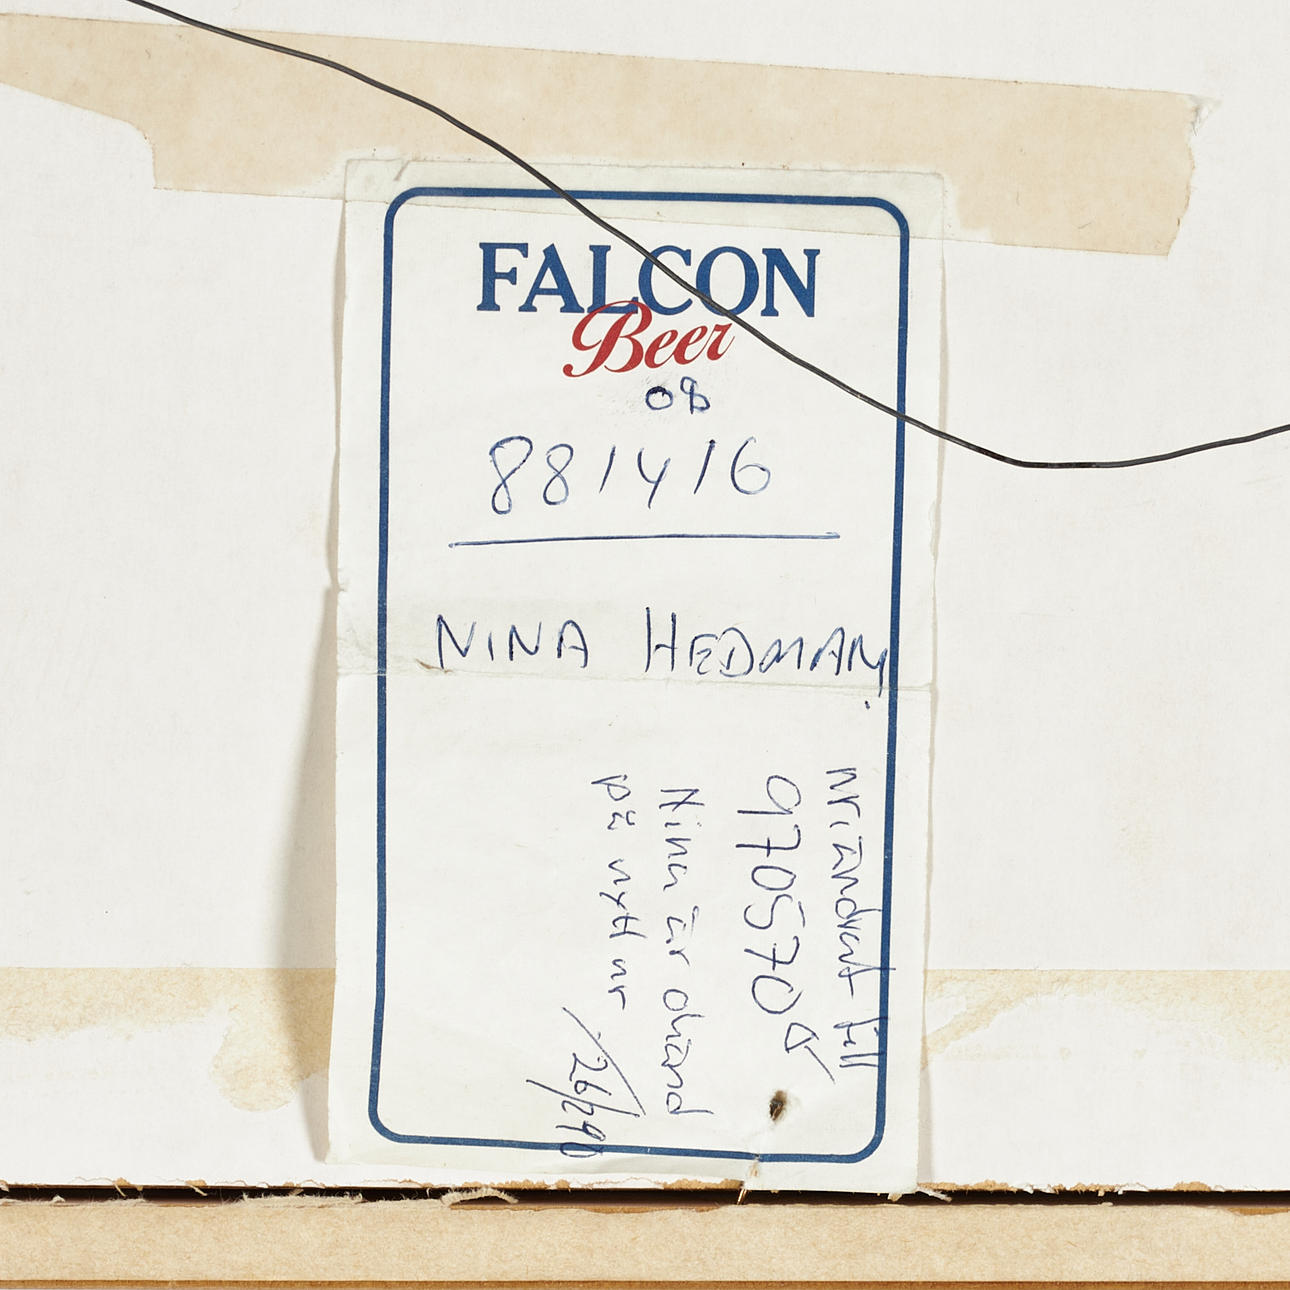 FALCON
Beer
08
881416
NINA HEDMAN.
nr: ändrat till
970570
Nina är ohänd
på nytt nr
26/2 90